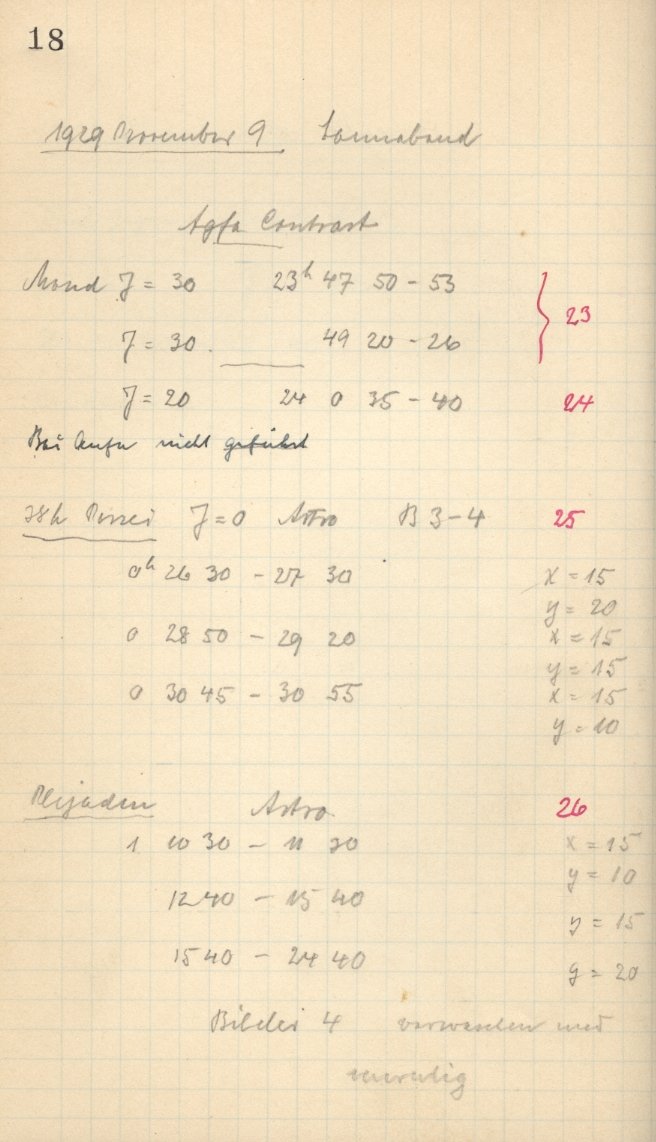 18
1929 November 9 Sonnabend
Agfa Contrast
Mond J = 30 23h 47 50 - 53
J = 30 49 20 - 26 23
J = 20 24 0 35 - 40 24
Bei Aufn nicht geführt
h Persei J = 0 Astro B 3-4 25
0h 26 30 - 27 30 x = 15
y = 20
0 28 50 - 29 20 x = 15
y = 15
0 30 45 - 30 55 x = 15
y = 10
Plejaden Astro 26
1 10 30 - 11 30 x = 15
y = 10
12 40 - 15 40
y = 15
15 40 - 24 40
y = 20
Bilder 4 verwaschen und
unruhig